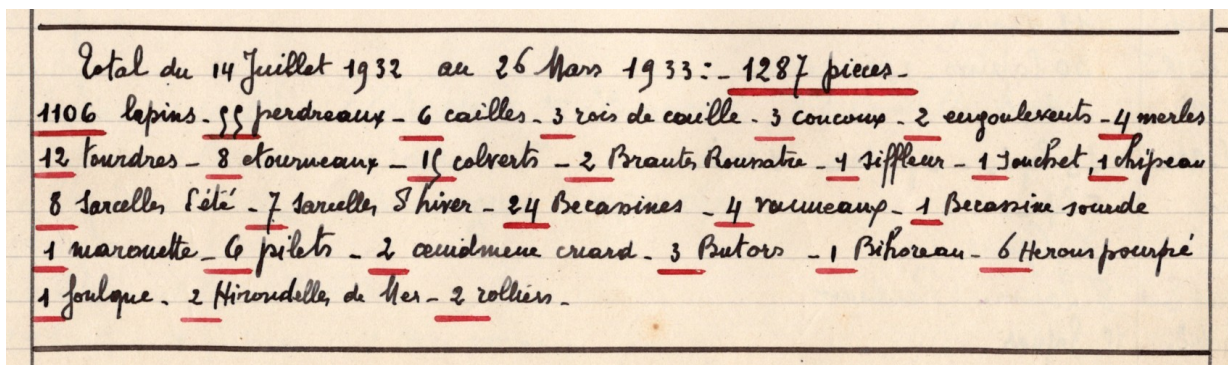 Total du 14 Juillet 1932 au 26 Mars 1933:- 1287 pieces-
1106 lapins - 55 perdreaux - 6 cailles - 3 rois de caille - 3 coucoux - 2 engoulevents - 4 merles
12 tourdres - 8 etourneaux - 15 colverts - 2 Brantes Roussatre - 1 siffleur - 1 souchet, 1 chipeau
8 sarcelles d'été - 7 sarcelles d'hiver - 24 Becassines - 4 vanneaux - 1 Becassine sourde
1 marouette - 6 pilets - 2 œdicmene criard - 3 Butors - 1 Bihoreau - 6 Herons pourpré
1 foulque - 2 Hirondelles de Mer - 2 rolliers -